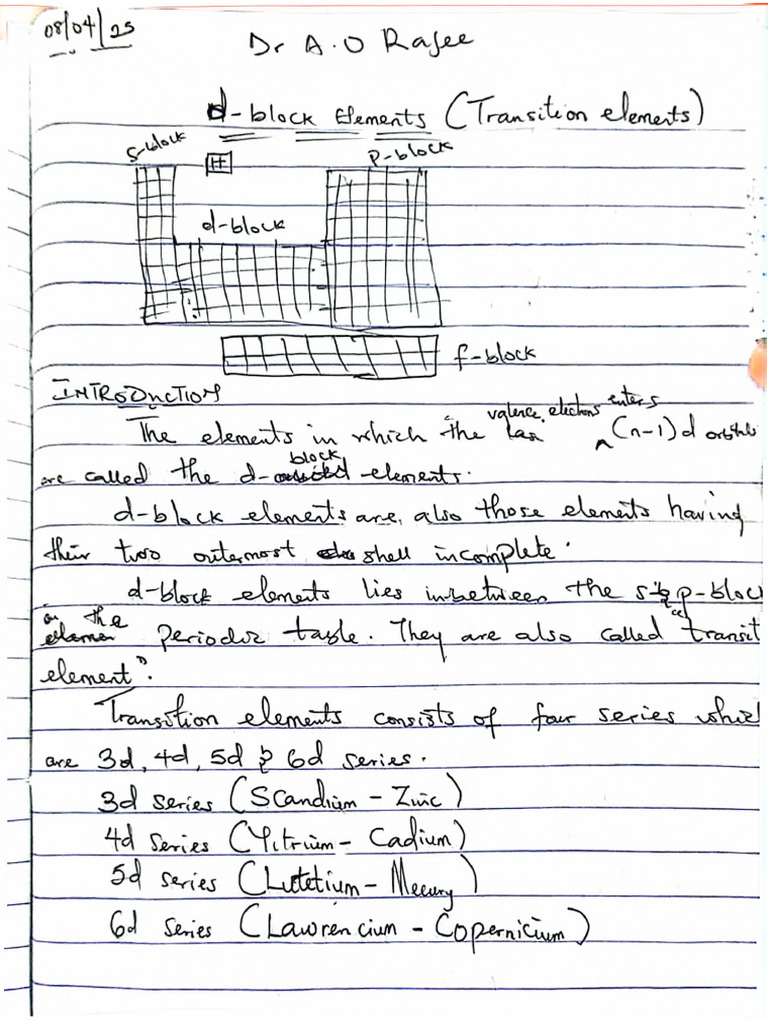 08/04/25
Dr A.O Rajee
d-block Elements (Transition elements)
s-block
H
p-block
d-block
f-block
INTRODUCTION
valence electrons enters
The elements in which the (n-1)d orbitals
block
are called the d- elements.
d-block elements are also those elements having
their two outermost shell incomplete.
d-block elements lies inbetween the s & p-bloc
on the
periodic table. They are also called "transit
element".
Transition elements consists of four series whic
are 3d, 4d, 5d & 6d series.
3d series (Scandium - Zinc)
4d series (Yitrium - Cadium)
5d series (Lutetium - Mecury)
6d series (Lawrencium - Copernicium)